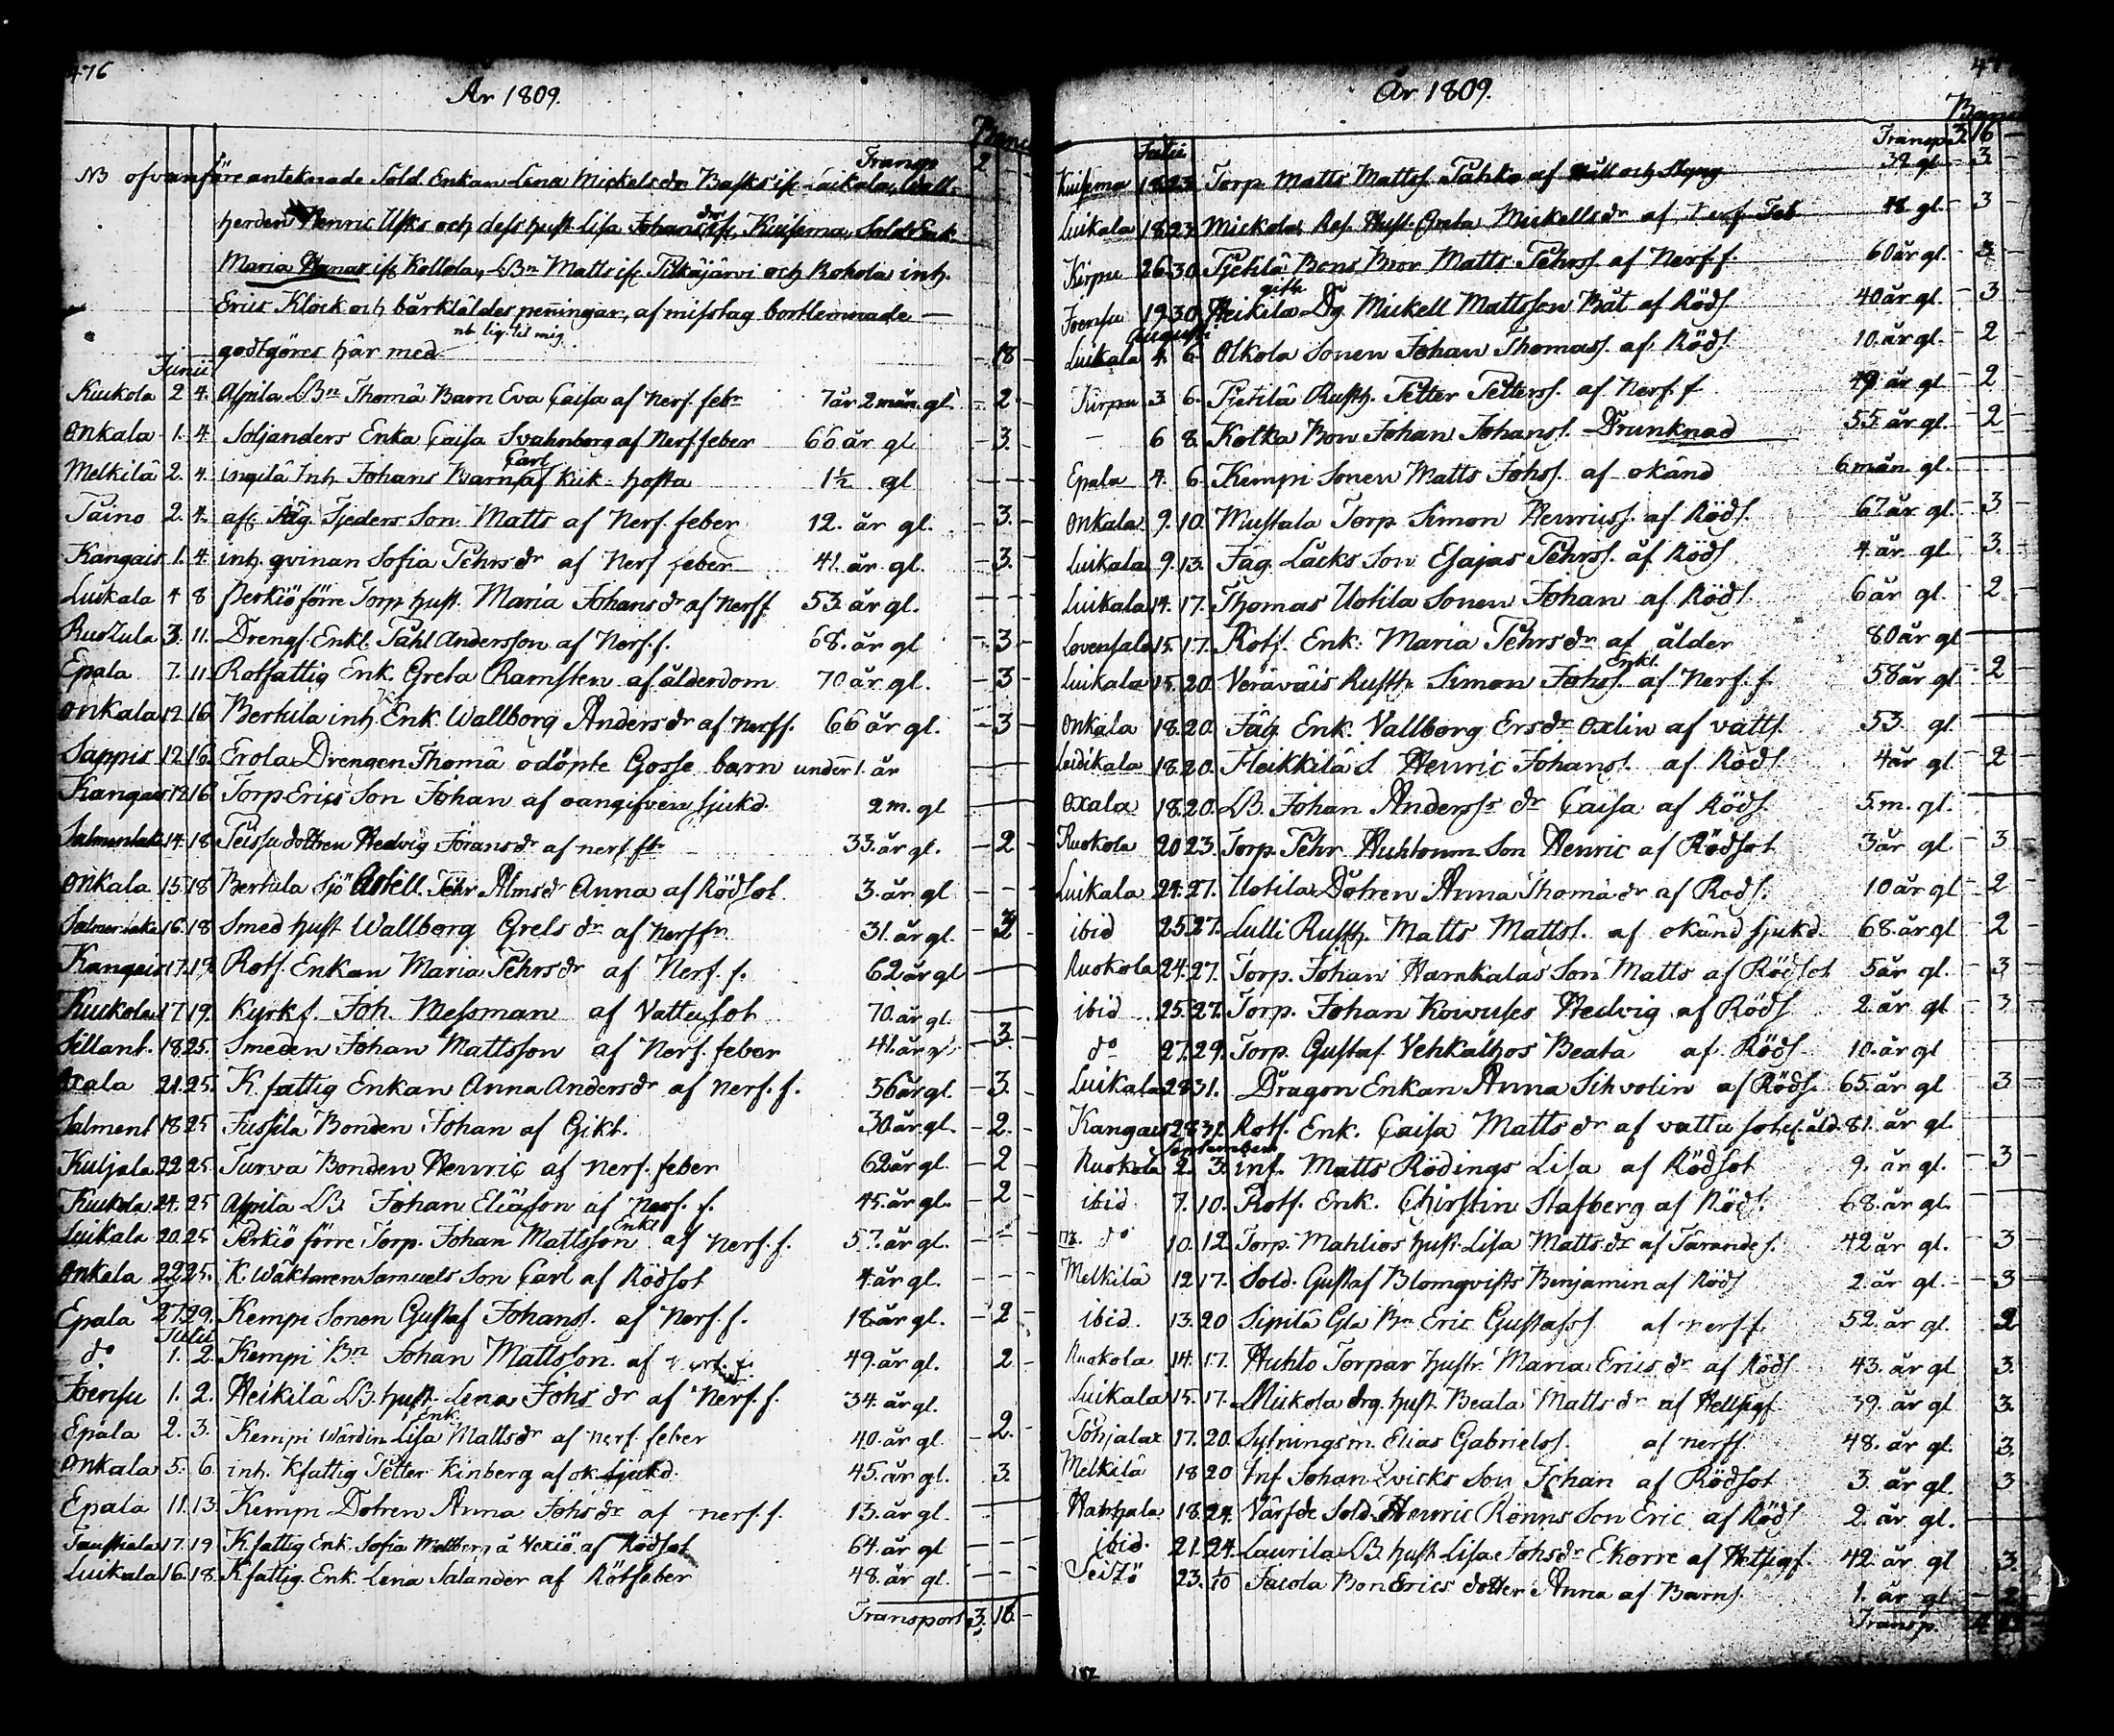 476
År 1809.
Banco
Transp 2
NB ofvanföre anteknade Sold. Enkan Lena Mickels dr Basks if. Luikala, Wall-
herden Henric Usks och dess hust. Lisa Johans dr if. Kuisema, Sold. Enk
Maria Hanas if. Kollola, LBn Matts if. Pitkäjärvi och Rokola inh.
Erics Klock och bårklädes peningar, af misstag bortlemnade
nb lig. til mig
godtgöres här med 18
Junii
Kuckola 2 4. Aspila LBn Thomä Barn Eva Caisa af Nerf. febr 7 år 2 mån. gl 2
Onkala 1. 4 Soljanders Enka Caisa Svahnborg af Nerf feber 66 år gl 3.
Carl
Melkilä 2. 4. ingilä Inh Johans Barn af kik-hosta 1½ gl
Taino 2. 4. afs. Fäg. Tjeders Son Matts af Nerf. feber 12. år gl. 3.
Kangais 1. 4 inh. qvinan Sofia Pehrs dr af Nerf feber 41. år gl. 3.
Luikala 4 8 Perkiö förre Torp. hust. Maria Johans dr af Nerff 53. år gl.
3. 11. Drengs. Enkl. Påhl Andersson af Nerf. f. 68. år gl 3
Epala 7. 11 Rotfattig Enk. Greta Ramsten af ålderdom 70 år gl. 3
Onkala 12 16 Bertula inh. Enk. Wallborg Anders dr af Nerff. 66 år gl. 3
Sappis 12 16. Erola Drengen Thomä odöpte Gosse barn under 1. år
Kangais 12 16 Torp Erics Son Johan af oangifven sjukd. 2 m. gl
14. 18 Peissu dottren Hedvig Jörans dr af nerf. fbr 33. år gl. 2
Onkala 15 18 Bertula Sjö Artill. Pehr Alms dr Anna af Rödsot 3. år gl
16. 18 Smed hust Wallborg Grels dr af nerffr 31. år gl. 2
Kangais 17. 19. Rotf. Enkan Maria Pehrs dr af Nerf. f. 62 år gl
Kuckola 17 19. Kyrkf. Joh. Messman af Vattusot 70. år gl.
Sillant. 18 25. Smeden Johan Mattsson af Nerf. feber 41. år gl. 3.
Oxala 21. 25. K. fattig Enkan Anna Anders dr af Nerf. f. 56 år gl. 3.
Salment 18 25 Jussila Bonden Johan af Gikt. 30 år gl. 2.
Kuljala 22 25 Turva Bonden Henric af Nerf. feber 62 år gl. 2
Kuckola 24. 25 Aspila LB. Johan Eliæson af Nerf. f. 45. år gl. 2
Enkl
Luikala 20. 25 Perkiö förre Torp. Johan Mattsson af Nerf. f. 57. år gl.
Onkala 22 25. K. Wäktaren Samuels Son Carl af Rödsot 4. år gl.
Epala 27. 29. Kempi Sonen Gustaf Johans. af Nerf. f. 18. år gl. 2
Julii
do 1. 2. Kempi Bn Johan Mattsson af Nerf. f. 49. år gl. 2
Joensu 1. 2. Heikilä LB. hust. Lena Johs dr af Nerf. f. 34. år gl.
Enk.
Epala 2. 3. Kempi Wärdin Lisa Matts dr af nerf. feber 40. år gl. 2.
Onkala 5. 6 inh. Kfattig Petter Kinberg af ok. sjukd. 45. år gl. 3.
Epala 11. 13. Kempi Dotren Anna Johs dr af nerf. f. 13. år gl.
Taustiala 17. 19 K.fattig Enk. Sofia Mellberg af Rödsot 64. år gl
Luikala 16. 18. Kfattig. Enk. Lena Salander af Rötfeber 48. år gl.
Transport 3. 16
År 1809.
Banco
Transp. 3. 16
Julii
Kuisema 18 23. Torp. Matts Matts. Tahko af Håll och Styng 39 gl. 3
Luikala 18. 23. Mickola Hust. Greta Mickells dr af 48 gl. 3
Kirpu 26. 30. Pjetilä Bons Bror Matts Pehrs. af Nerf. f. 60 år gl. 3
gifte
Joensu 19 30. Heikilä Dg. Mickell Mattsson Båt af Röds 40 år gl. 3
Augusti
Luikala 4. 6. Olkola Sonen Johan Thomas. af Röds. 10. år gl. 2
Kirpu 3 6. Pjetilä Rusth. Petter Petters. af Nerf. f 49 år gl 2
6 8. Kotka Bon Johan Johans. Drunknad 55. år gl. 2
Epala 4. 6. Kempi Sonen Matts Johs. af okänd 6 mån. gl.
Onkala 9. 10. Mustala Torp. Simon Henrics. af Röds. 67. år gl. 3
Luikala 9. 13. Fäg. Läcks Son Esajas Pehrs. af Röds. 4. år gl. 3.
Luikala 14. 17. Thomas Uotila Sonen Johan af Röds. 6 år gl. 2.
15. 17. Rotf. Enk. Maria Pehrs dr af ålder 80 år gl
Enkl.
Luikala 15. 20. Veräväis Rusth. Simon Johs. af Nerf. f. 58 år gl 2
Onkala 18. 20. Fäg. Enk. Vallborg Ers dr Oxlin af vatts. 53. gl.
18. 20. Heikkilä S. Henric Johans. af Röds 4 år gl 2
Oxala 18. 20. LB. Johan Anderss dr Caisa af Röds. 5. m. gl.
Ruokola 20 23. Torp. Pehr Huhtoum Son Henric af Rödsot 3 år gl 3
Luikala 24. 27. Uotila Dotren Anna Thomä dr af Röds. 10 år gl 2
ibid 25 27. Lulli Rusth. Matts Matts. af okänd sjukd. 68. år gl 2
Ruokola 24. 27. Torp. Johan Hamkalas Son Matts af Rödsot 5 år gl. 3
ibid 25. 27. Torp. Johan Hedvig af Röds 2. år gl 3
do 27. 29. Torp. Gustaf Vehkalhos Beata af Röds 10. år gl
Luikala 28 31. Dragon Enkan Anna Sihvolin af Röds. 65. år gl 3
Kangais 28 31. Rotf. Enk. Caisa Matts dr af vattusot 81. år gl
September
Ruokola 2. 3. inf. Matts Rödings Lisa af Rödsot 9. år gl. 3
ibid 7. 10. Rotf. Enk. Chirstin Stafberg af Röds. 68. år gl.
do 10. 12. Torp. Mahlios hust. Lisa Matts dr af Tärande s. 42 år gl. 3
Melkilä 12 17. Sold. Gustaf Blomqvists Benjamin af Röds 2. år gl. 3
ibid. 13. 20 Sipilä Gla Bn Eric Gustafss. af nerf f. 52. år gl. 2
Ruokola 14. 17. Huhto Torpar hustr. Maria Erics dr af Röds 43. år gl 3.
Luikala 15. 17. Mickola drg. hust. Beata Matts dr af Hetsigf. 39. år gl 3.
Pohjala 17. 20. Sytningsm. Elias Gabriels. af nerff. 48. år gl. 3.
Melkilä 18 20 Inf. Johan Qvicks Son Johan af Rödsot 3. år gl. 3
18. 24. Värfde Sold. Henric Rönns Son Eric af Röds 2. år gl.
ibid. 21. 24. Laurila LB. hust. Lisa Johs dr Ekorre af Hetsigf. 42 år gl 3.
23. Jacola Bon Erics dotter Anna af Barns. 1. år gl 2
Transp.